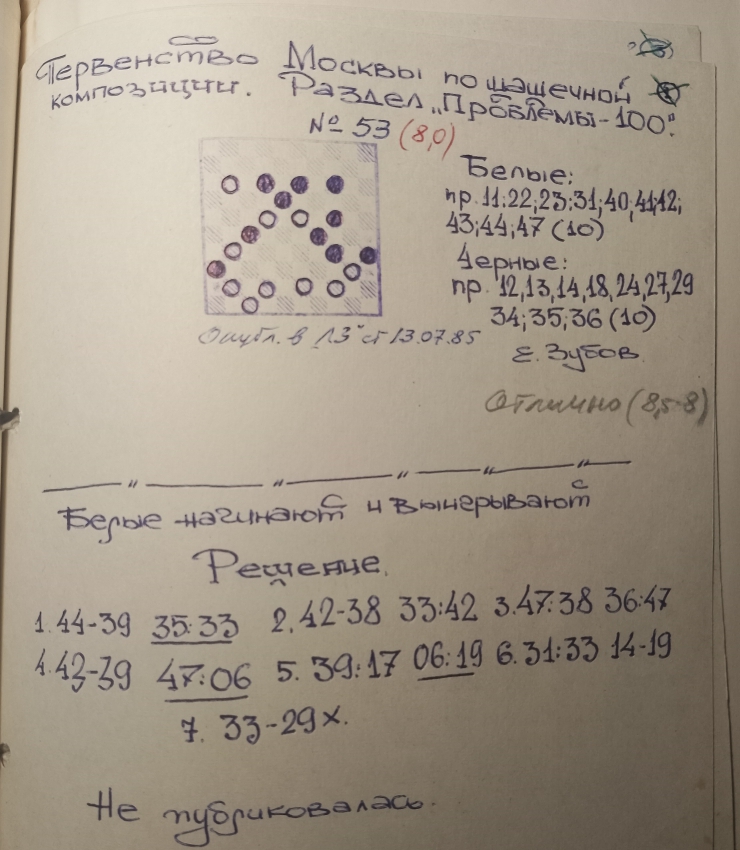 Первенство Москвы по шашечной
композиции. Раздел „Проблемы-100".
№ 53 (8,0)
Белые:
пр. 11;22;23;31;40;41;42;
43;44;47 (10)
Черные:
пр. 12,13,14,18,24,27,29
34;35;36 (10)
Опубл. в „АЗ" от 13.07.85
Е. Зубов
Отлично (8,5-8)
Белые начинают и выигрывают
Решение.
1.44-39 35:33 2.42-38 33:42 3.47:38 36:47
4.43-39 47:06 5.39:17 06:19 6.31:33 14-19
7. 33-29x.
Не публиковалась.